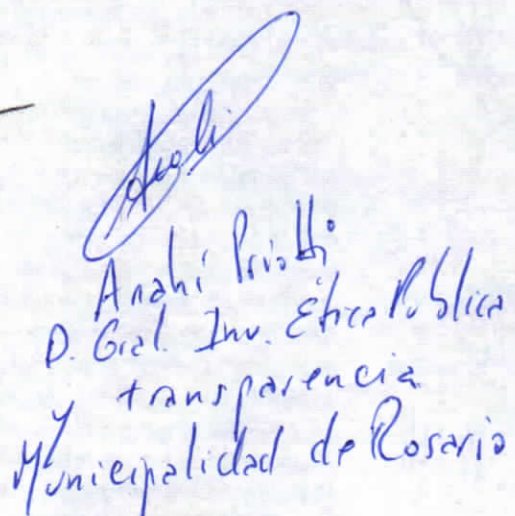 Anahí Priotti
D. Gral. Inv. Ética Pública
y transparencia
Municipalidad de Rosario